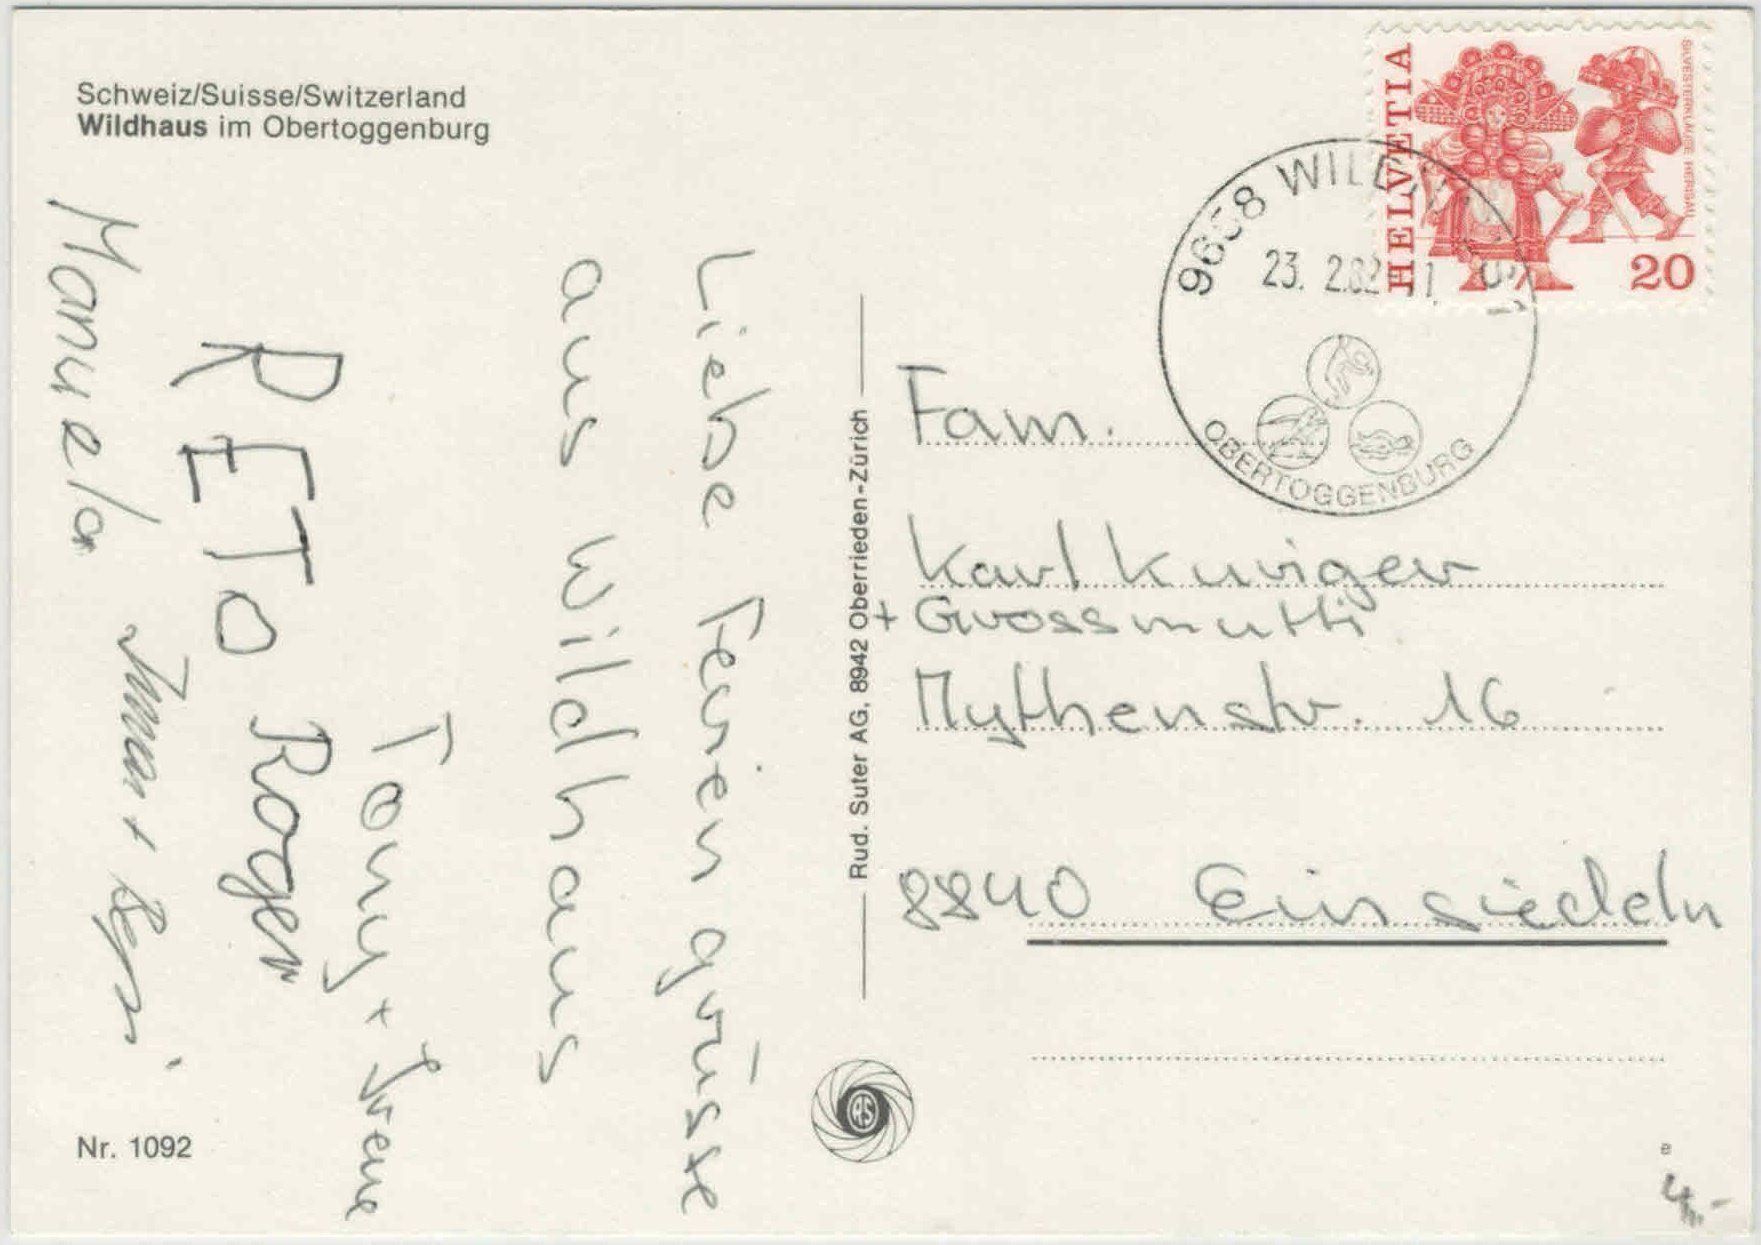 Schweiz/Suisse/Switzerland
Wildhaus im Obertoggenburg
Liebe Feriengrüsse
aus Wildhaus
Tony + Irene
RETO Roger
Irma +
Manuela
Nr. 1092
Rud. Suter AG, 8942 Oberrieden-Zürich
HELVETIA
SILVESTERKLÄUSE HERISAU
20
9658 WILDHAUS
23. 2.82-11
OBERTOGGENBURG
Fam.
Karl Kuriger
+ Grossmutti
Mythenstr. 16
8840 Einsiedeln
4.-